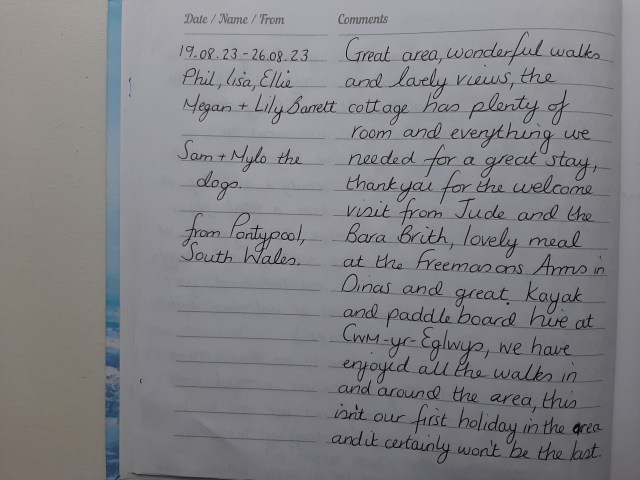 Date / Name / From
Comments
19.08.23 - 26.08.23
Phil, Lisa, Ellie
Megan + Lily Barrett
Sam + Mylo the
dogs.
from Pontypool,
South Wales.
Great area, wonderful walks
and lovely views, the
cottage has plenty of
room and everything we
needed for a great stay,
thankyou for the welcome
visit from Jude and the
Bara Brith, lovely meal
at the Freemasons Arms in
Dinas and great Kayak
and paddle board hire at
Cwm-yr-Eglwys, we have
enjoyed all the walks in
and around the area, this
isn't our first holiday in the area
and it certainly won't be the last.